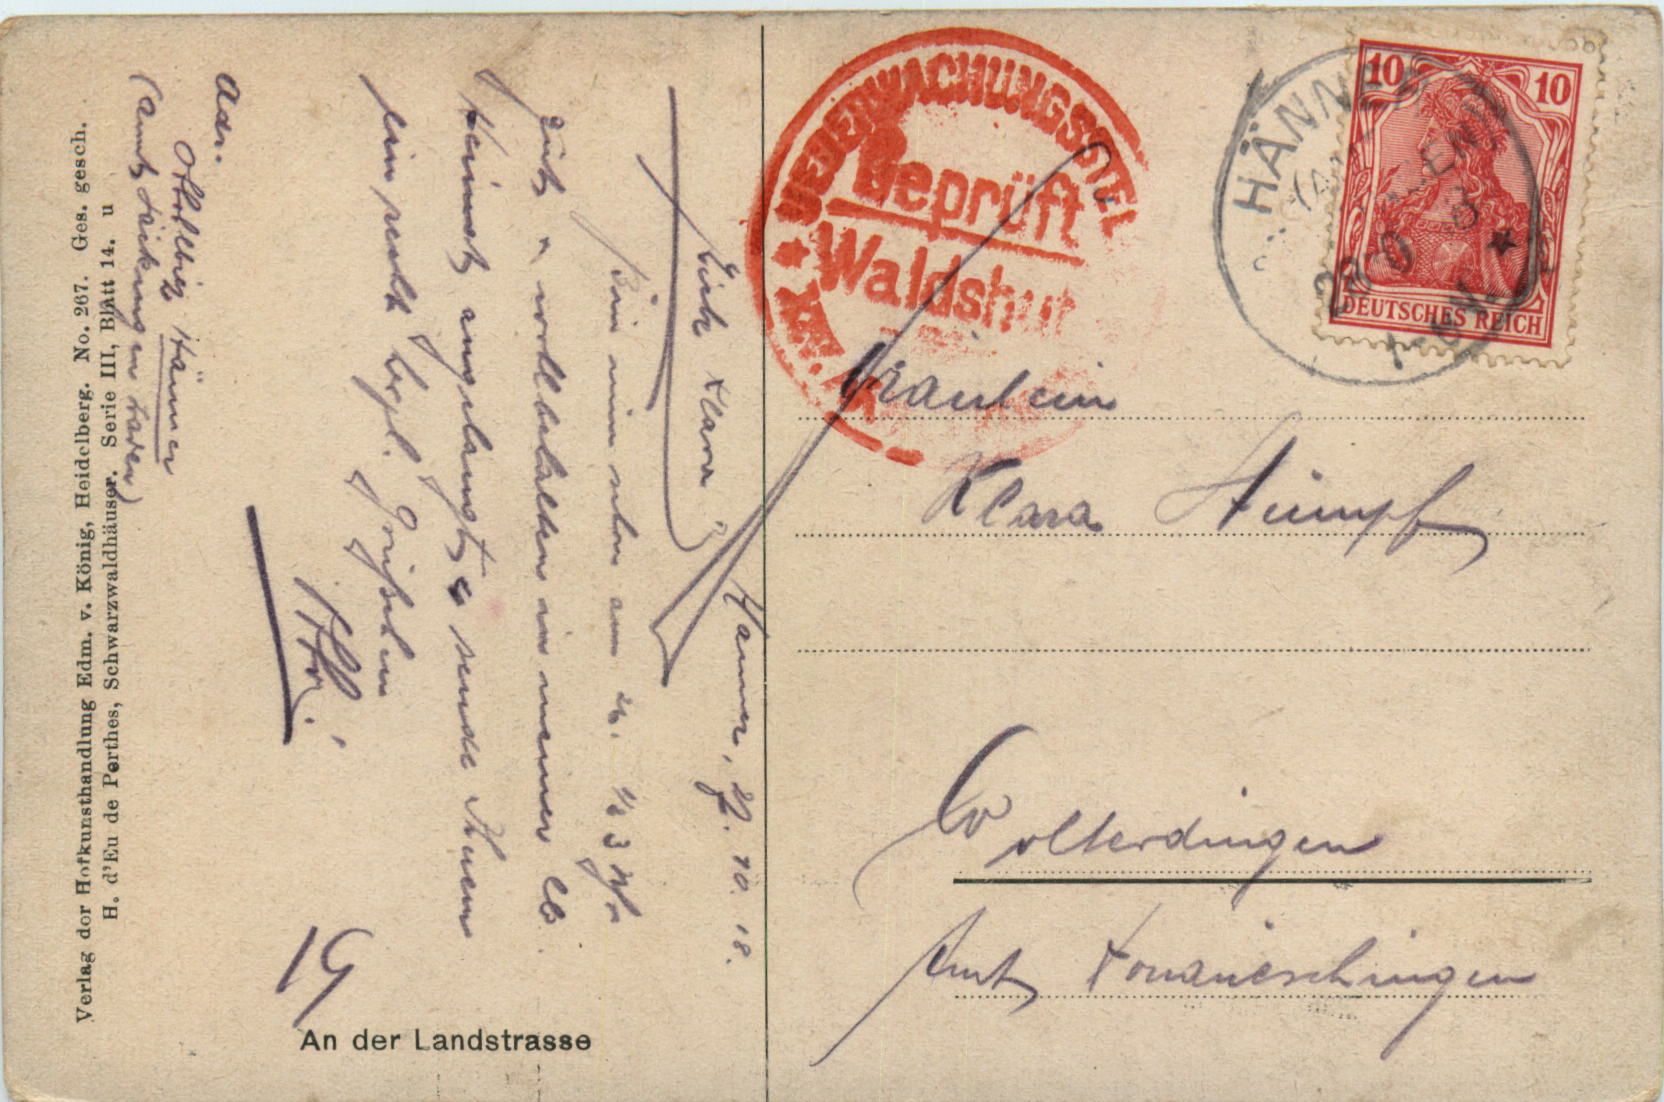 Hänner, 27. 10. 18.
Liebe Klara!
Bin nun schon am 26. 1/2 3 Uhr
gut u. wohlbehalten in meiner lb.
Heimat angelangt & sende Ihnen
ein recht herzl. Grüßchen
Adr.
Hänner
(Amt Säckingen Baden)
19
An der Landstrasse
Verlag der Hofkunsthandlung Edm. v. König, Heidelberg. No. 267. Ges. gesch.
H. d'Eu de Perthes, Schwarzwaldhäuser. Serie III, Blatt 14. u
UEBERWACHUNGSSTELLE
Geprüft
Waldshut
HÄNNER
10 10
DEUTSCHES REICH
Fräulein
Klara Stumpf
Wolterdingen
Amt Donaueschingen